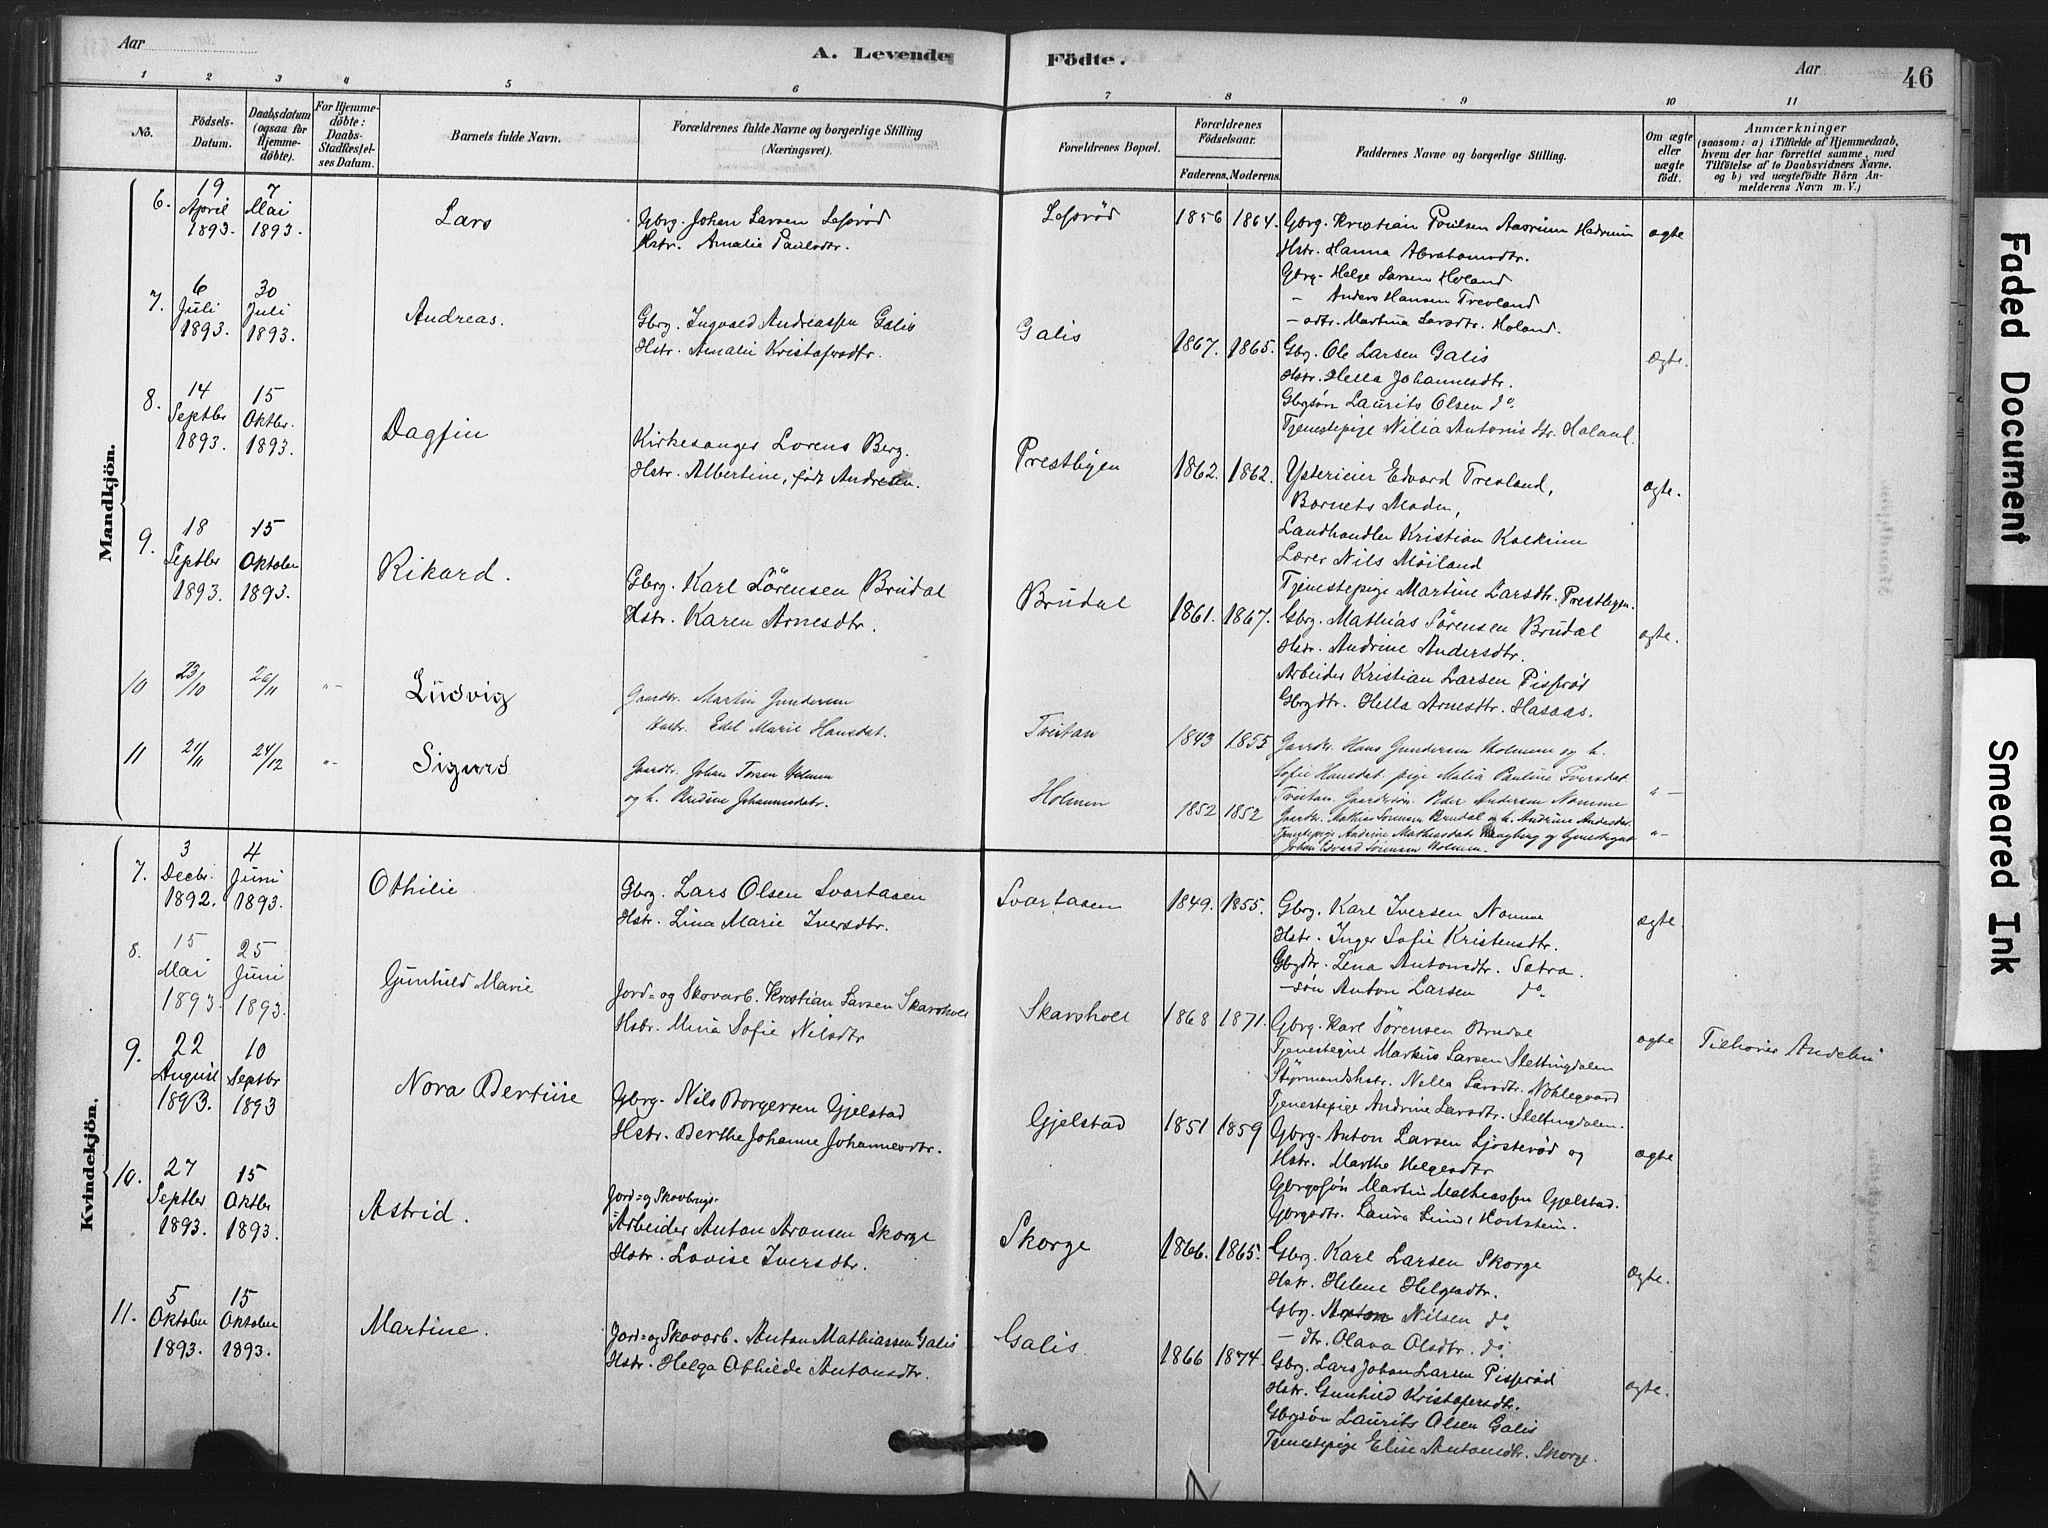 Aar
A. Levende Födte.
Aar
46
1 2 3 4 5 6 7 8 9 10 11
No.
Födsels-Datum.
Daabsdatum (ogsaa for Hjemmedöbte).
For Hjemmedöbte: Daabs-Stadfæstelses Datum.
Barnets fulde Navn.
Forældrenes fulde Navne og borgerlige Stilling (Næringsvei).
Forældrenes Bopæl.
Forældrenes Födselsaar.
Faderens. Moderens.
Faddernes Navne og borgerlige Stilling.
Om ægte eller uægte födt.
Anmærkninger
(saasom: a) i Tilfælde af Hjemmedaab, hvem der har forrettet samme, med Tilföielse af to Daabsvidners Navne. og b) ved uægtefödte Börn Anmelderens Navn m. V.)
Mandkjön.
6. 19 April 1893. 7 Mai 1893.
Lars
Gbrg. Johan Larsen Lefsrød
Hstr. Amalie Paulsdtr.
Lefsrød
1856 1864.
Gbrg. Kristian Poulsen Aasrum Hedrum
Hstr. Hanna Abrahamsdtr.
Gbrg. Helge Larsen Holand
- Anders Hansen Trevland
- sdtr. Martina Larsdtr. Holand.
ægte
7. 6 Juli 1893. 30 Juli 1893.
Andreas.
Gbrg. Ingvald Andreassen Galis
Hstr. Amalie Kristofersdtr.
Galis
1867. 1865.
Gbg. Ole Larsen Galis
Hstr. Hella Johannesdtr.
Gbgsøn Laurits Olsen do.
Tjenestepige Nilia Antonisdtr. Holand.
Ægte.
8. 14 Septbr 1893. 15 Oktbr. 1893.
Dagfin
Kirkesanger Lorens Berg.
Hstr. Albertine, født Andresen.
Prestbyen
1862. 1862.
Ysterieier Edvard Trevland,
Barnets Moder,
Landhandler Kristian Kolkinn
Lærer Nils Möiland
Tjenestepige Martine Larsdtr. Prestbyen.
ægte.
9. 18 Septbr 1893. 15 Oktober 1893.
Rikard.
Gbrg. Karl Sørensen Brudal
Hstr. Karen Arnesdtr.
Brudal
1861. 1867.
Gbrg. Mathias Sørensen Brudal
Hstr. Andrine Andersdtr.
Arbeider Kristian Larsen Pisserød
Gbrgdtr. Hella Arnesdtr. Hasaas.
ægte.
10 23/10 26/11 "-
Ludvig
Gaardbr. Martin Gundersen
Hustr. Edel Marie Hansdat.
Trestan
1843 1855
Gaardbr. Hans Gundersen Holmen og h.
Sofie Hansdat. pige Malia Pauline Iversdat.
Trestan. Gaardbrsøn. Peder Andersen Nomme
"-
11 21/11 24/12 "-
Sigurd
Gaardbr. Johan Torsen Holmen
og h. Andrine Johannesdatr.
Holmen
1852 1852
Gaardbr. Mathias Sørensen Brudal og h. Andrine Andersdat.
Tjenestepige Andrine Mathiasdat. Haugberg og Tjenestegut
Johan Edvard Sørensen Holmen.
"-
Kvindekjön.
7. 3 Decbr. 1892. 4 Juni 1893.
Othilie
Gbg. Lars Olsen Svartaasen
Hstr. Lina Marie Iversdtr.
Svartaasen
1849. 1855.
Gbrg. Karl Iversen Nomme
Hstr. Inger Sofie Kristensdtr.
Gbgdtr. Lena Antonsdtr. Satra.
- søn Anton Larsen do.
ægte.
8. 15 Mai 1893. 25 Juni 1893.
Gunhild Marie
Jord- og Skovarb. Kristian Larsen Skarsholt
Hstr. Mina Sofie Nilsdtr
Skarsholt
1868 1871.
Gbrg. Karl Sørensen Brudal
Tjenestegut Markus Larsen Slettingdalen
Styrmandshstr. Nella Larsdtr. Nøklegaard
Tjenestepige Andrine Larsdtr. Slettingdalen.
ægte
Tilhører Andebu
9. 22 August 1893. 10 Septbr 1893
Nora Bertine
Gbrg. Nils Borgersen Gjelstad
Hstr. Berthe Johanne Johannesdtr.
Gjelstad
1851 1859
Gbrg. Anton Larsen Ljøsterød og
Hstr. Marthe Helgesdtr
Gbrgssøn Martin Mathiassen Gjelstad.
Gbrgsdtr. Laura Lund, Hortstein.
ægte
10. 27 Septbr 1893. 15 Oktbr 1893.
Astrid.
Jord- og Skovbrugs-
Arbeider Anton Aronsen Skorge
Hstr. Lovise Iversdtr.
Skorge
1866. 1865.
Gbrg. Karl Larsen Skorge
Hstr. Helene Helgesdtr.
Gbg. Anton Nilsen do.
- dtr. Olava Olsdtr. do.
Ægte.
11. 5 Oktober 1893. 15 Oktober 1893.
Martine.
Jord- og Skovarb. Anton Mathiassen Galis
Hstr. Helga Othilde Antonsdtr.
Galis.
1866 1874.
Gbg. Lars Johan Larsen Pisserød
Hstr. Gunhild Kristofersdtr.
Gbgsøn Laurits Olsen Galis
Tjenestepige Elise Antonsdtr. Skorge.
ægte.
Faded Document
Smeared Ink